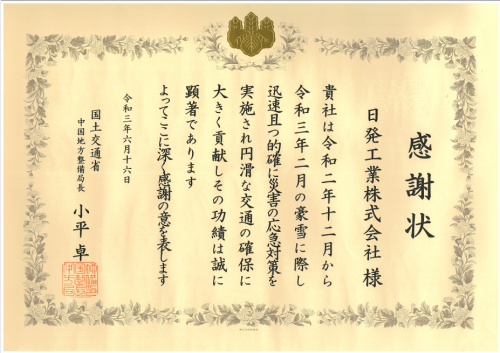 感謝状
日発工業株式会社 様
貴社は令和二年十二月から
令和三年二月の豪雪に際し
迅速且つ的確に災害の応急対策を
実施され円滑な交通の確保に
大きく貢献しその功績は誠に
顕著であります
よってここに深く感謝の意を表します
令和三年六月十六日
国土交通省
中国地方整備局長 小平 卓